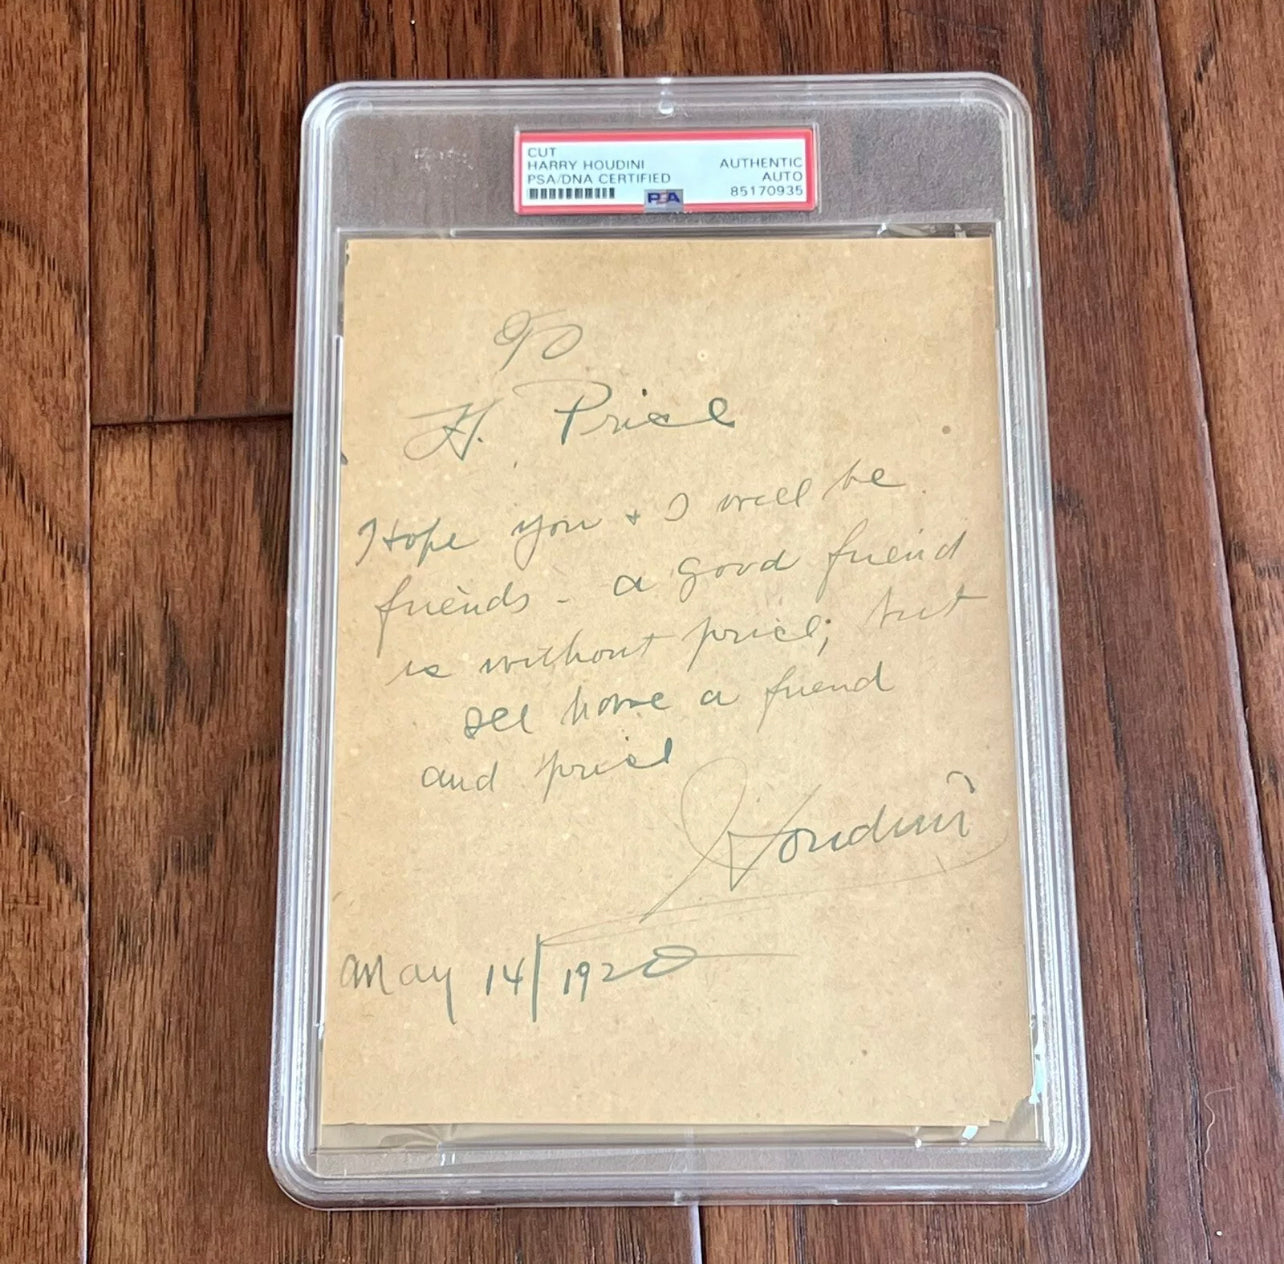 CUT
HARRY HOUDINI
PSA/DNA CERTIFIED
AUTHENTIC
AUTO
85170935
PSA
To
H. Price
Hope you + I will be
friends - a good friend
is without price; but
all have a friend
and price
Houdini
May 14/1920